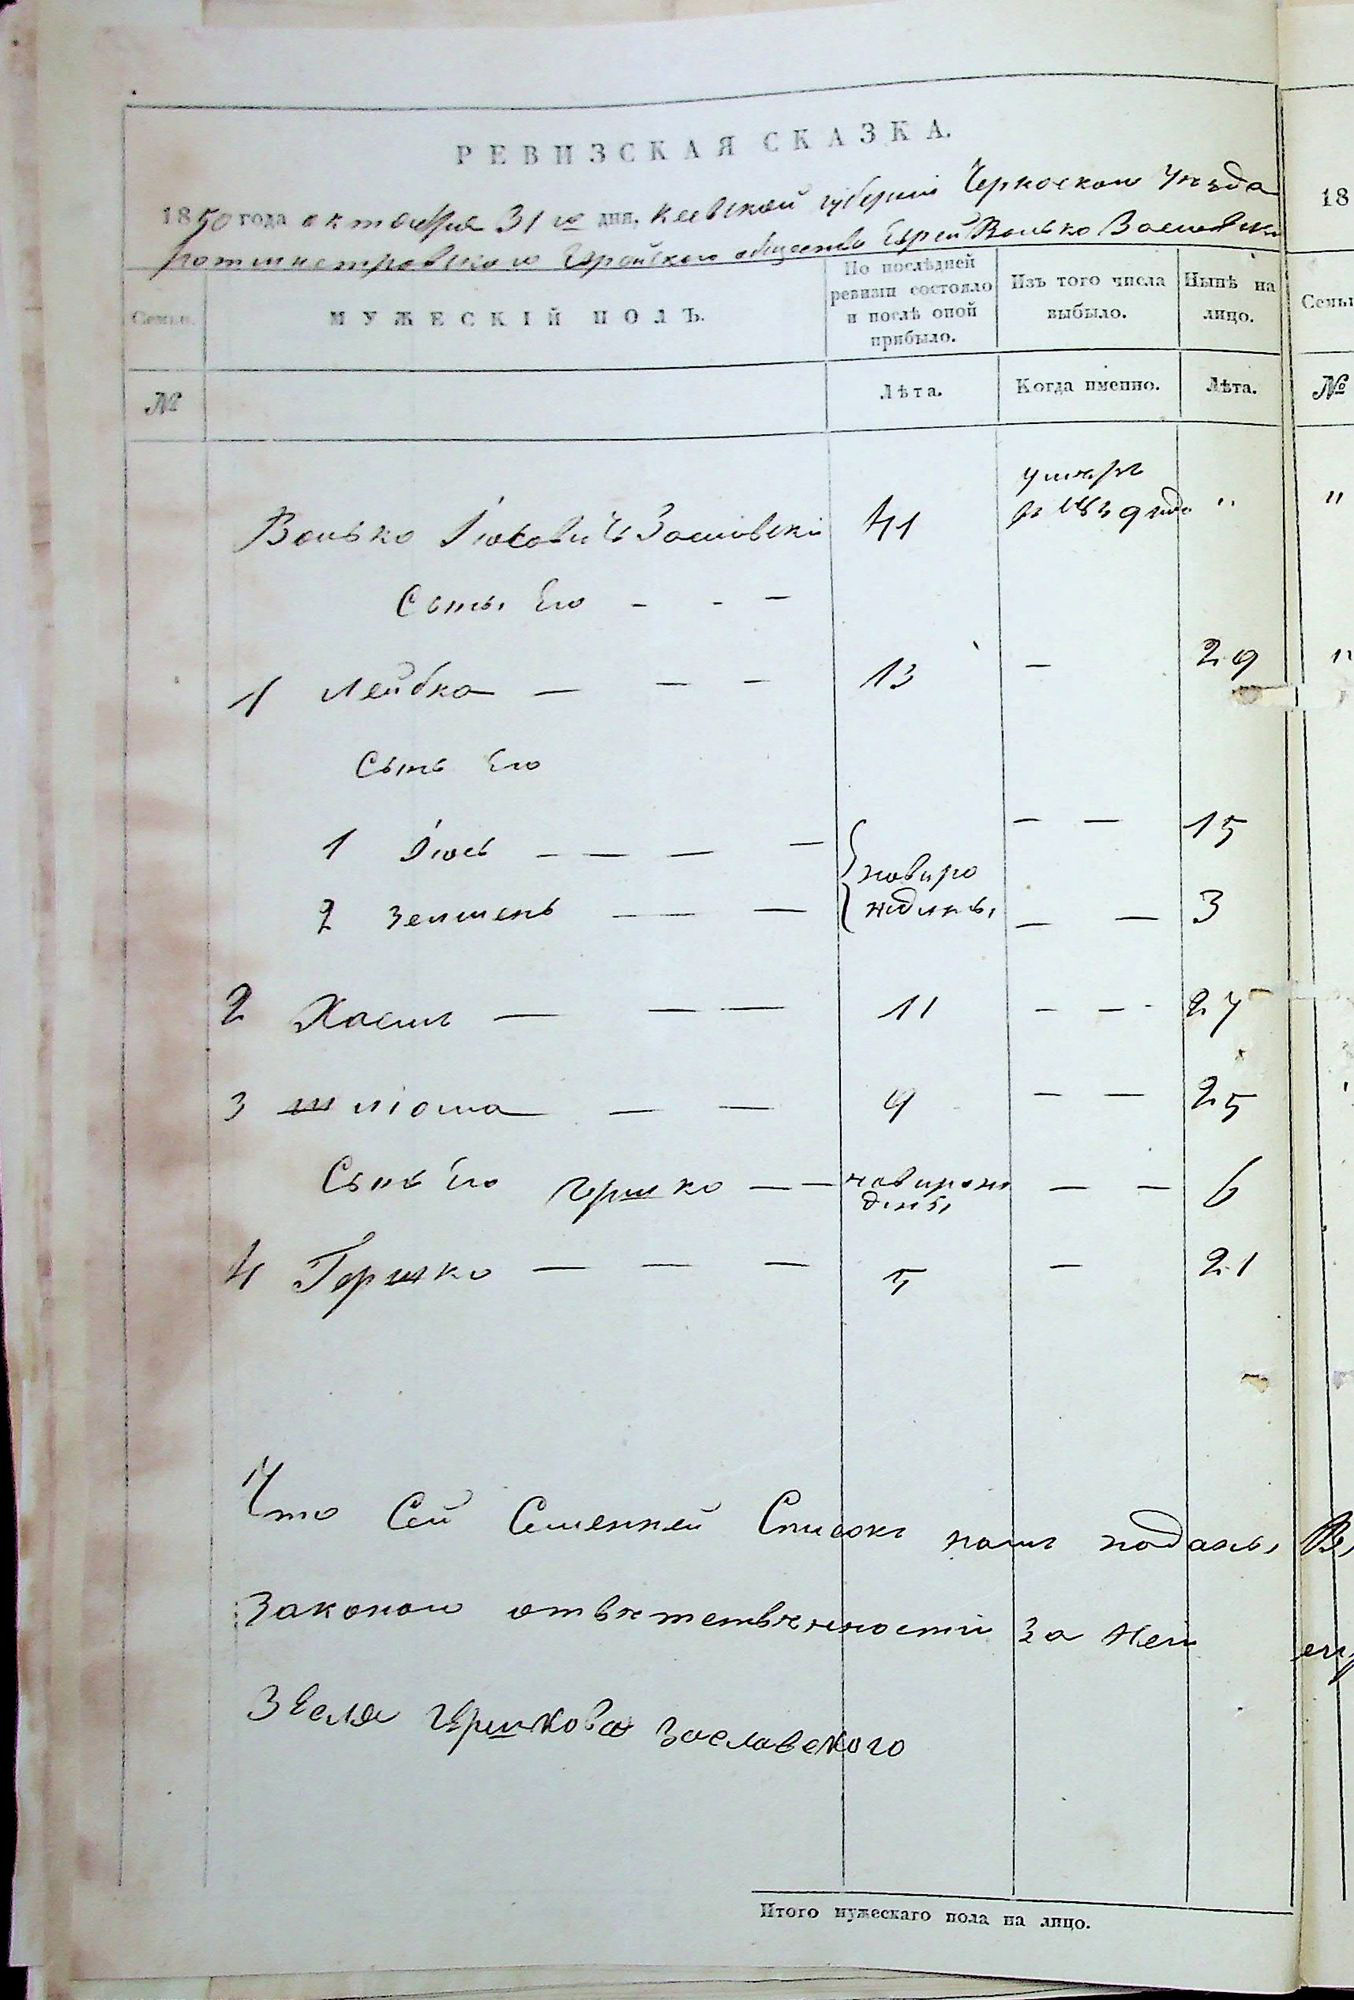 РЕВИЗСКАЯ СКАЗКА.
1850 года октобрия 31 го дня, киевской губернии Черкоском Уезда
ротмистровского Еврейского общества Еврей Волько Заславски
Семьи.
МУЖЕСКІЙ ПОЛЪ.
По послѣдней ревизіи состояло и послѣ оной прибыло.
Изъ того числа выбыло.
Нынѣ на лицо.
№
Лѣта.
Когда именно.
Лѣта.
Волько Іосіовичъ Заславскі 41 умеръ 1839 года "
Сыны Его - - -
1 Лейбка — — — 13 — 29
Сынъ Его
1 Іось — — — — — — 15
2 Зельмень — — новиро ждины — — 3
2 Хаимъ — — — 11 — — 27
3 шліома — — 9 — — 25
Сынъ Его Гершко — — новирож дины — — 6
4 Гершко — — — 5 — 21
Что Сей Семенней Списокъ нами поданы
Законом отвѣтственности за Ней
Зселя Гершкова Заславского
Итого мужескаго пола на лицо.
18
Семьи
№
"
"